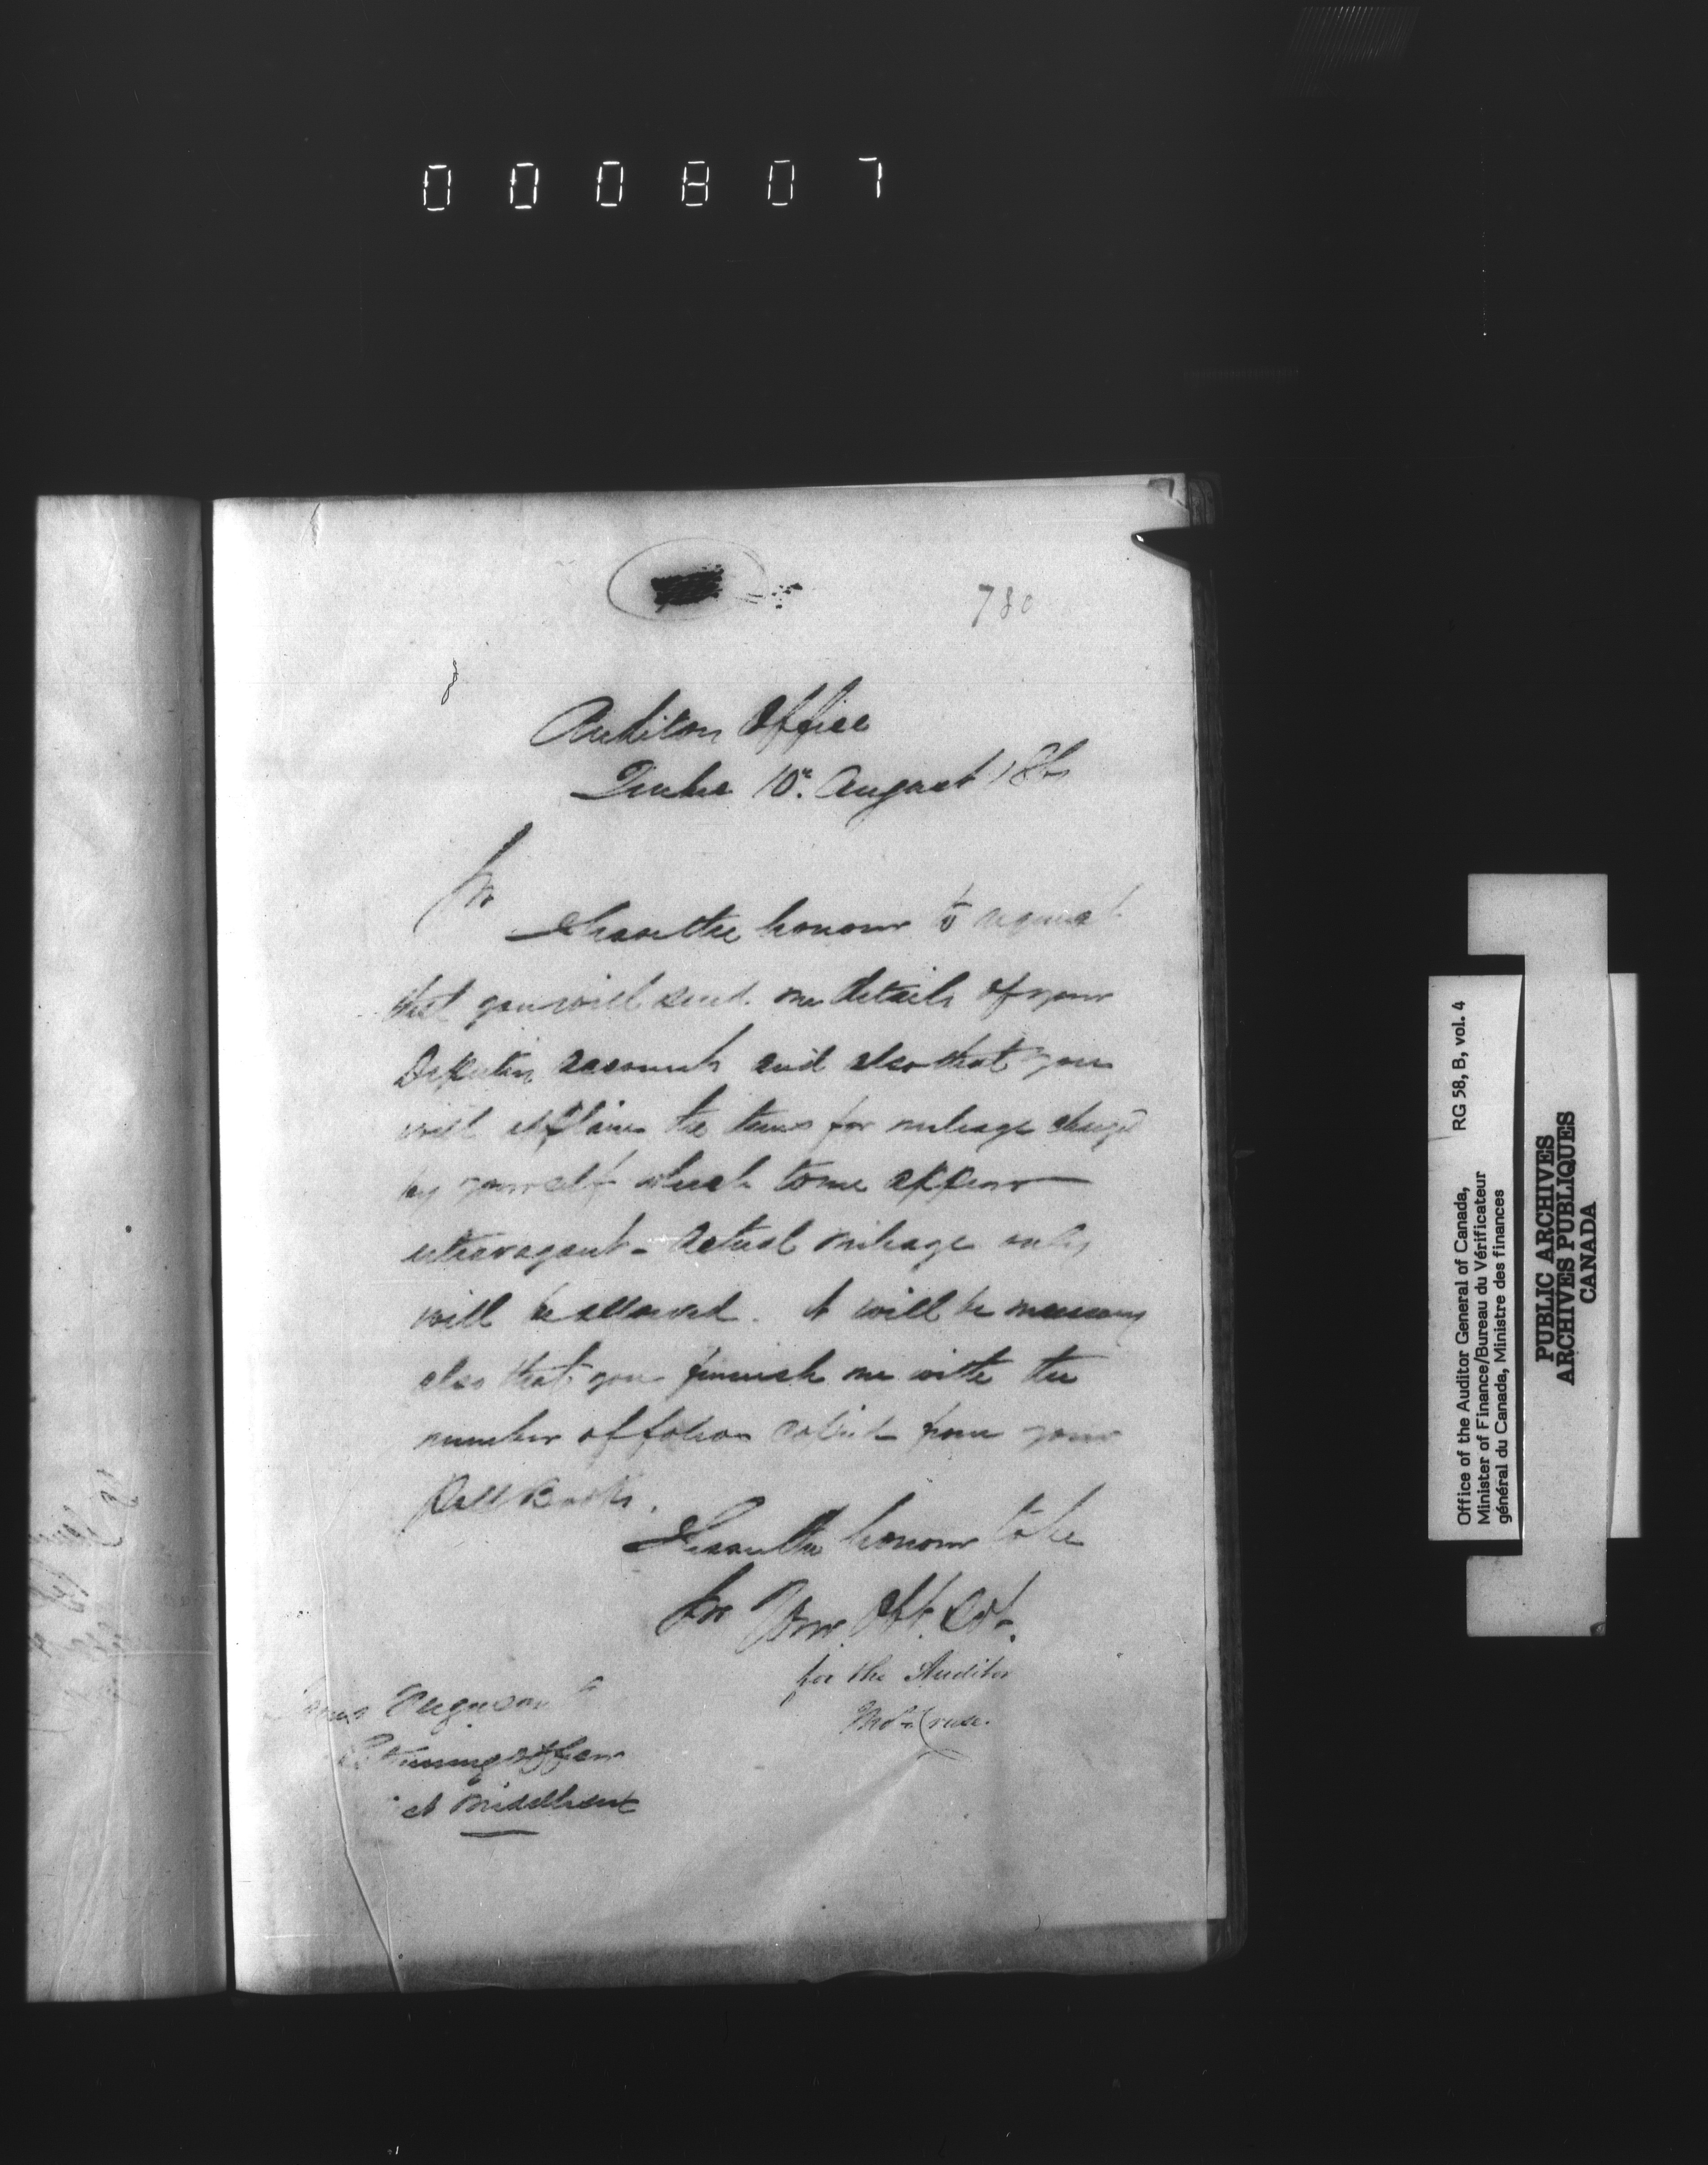 000807
780
Auditors Office
Quebec 10th. August 186
Sir
I have the honour to request
that you will send me details of your
Deputies accounts and also that you
will explain the items for mileage charged
by yourself which to me appear
extravagant - Actual mileage only
will be allowed. It will be necessary
also that you furnish me with the
number of folios copied from your
Poll Books.
I have the honour to be
Sir Your Obt. Svt.
for the Auditor
Cruse.
Ferguson
Returning Officer
Et Middlesex
Office of the Auditor General of Canada, RG 58, B, vol. 4
Minister of Finance/Bureau du Vérificateur
général du Canada, Ministre des finances
PUBLIC ARCHIVES
ARCHIVES PUBLIQUES
CANADA